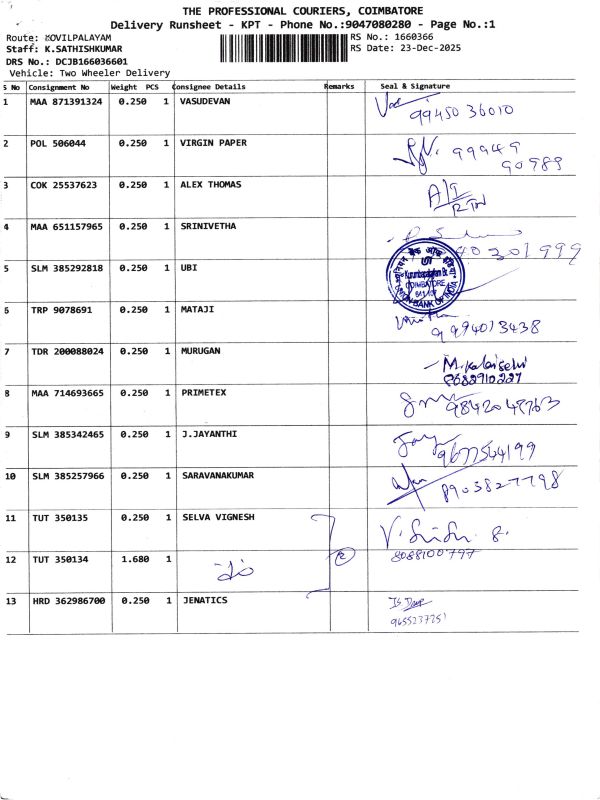 THE PROFESSIONAL COURIERS, COIMBATORE
Delivery Runsheet - KPT - Phone No.:9047080280 - Page No.:1
Route: KOVILPALAYAM
RS No.: 1660366
Staff: K.SATHISHKUMAR
RS Date: 23-Dec-2025
DRS No.: DCJB166036601
Vehicle: Two Wheeler Delivery
S No Consignment No Weight PCS Consignee Details Remarks Seal & Signature
1 MAA 871391324 0.250 1 VASUDEVAN
9945036010
2 POL 506044 0.250 1 VIRGIN PAPER
99949
90989
3 COK 25537623 0.250 1 ALEX THOMAS
A/I
RTN
4 MAA 651157965 0.250 1 SRINIVETHA
40301999
5 SLM 385292818 0.250 1 UBI
Kurumbapalayam Br.
COIMBATORE
641 107
UNION BANK OF INDIA
6 TRP 9078691 0.250 1 MATAJI
9994013438
7 TDR 200088024 0.250 1 MURUGAN
M.Kalaiselvi
8682910227
8 MAA 714693665 0.250 1 PRIMETEX
9842048763
9 SLM 385342465 0.250 1 J.JAYANTHI
Jay
9677544199
10 SLM 385257966 0.250 1 SARAVANAKUMAR
8903827798
11 TUT 350135 0.250 1 SELVA VIGNESH
12 TUT 350134 1.680 1
2
8088100797
13 HRD 362986700 0.250 1 JENATICS
9655237251